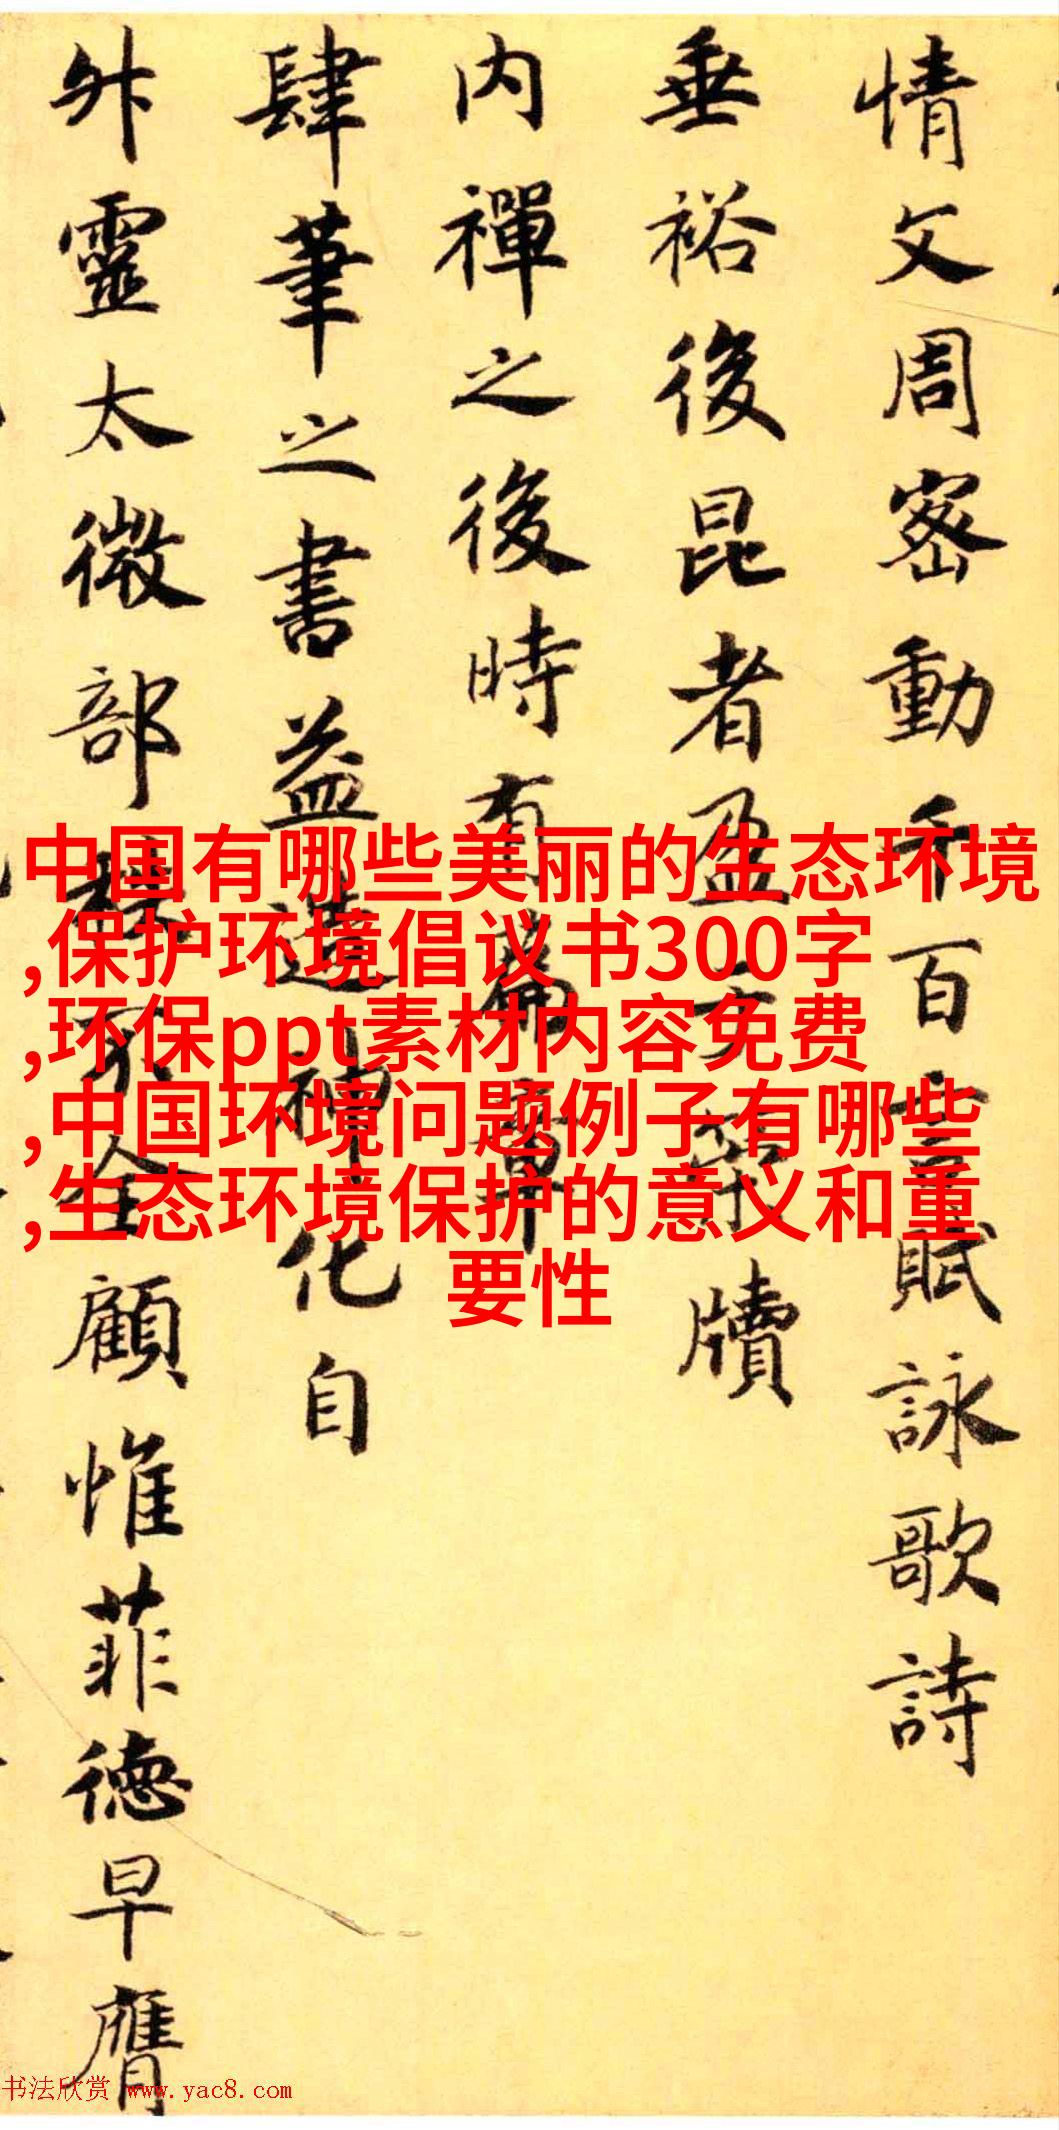 情文周密動千百言賦詠歌詩
垂裕後昆者盈牘
内禪之後時有篇章
肆筆之書益造神化自
靈太微部全顧惟菲德早膺
中国有哪些美丽的生态环境
,保护环境倡议书300字
,环保ppt素材内容免费
,中国环境问题例子有哪些
,生态环境保护的意义和重
要性
书法欣赏 www.yac8.com